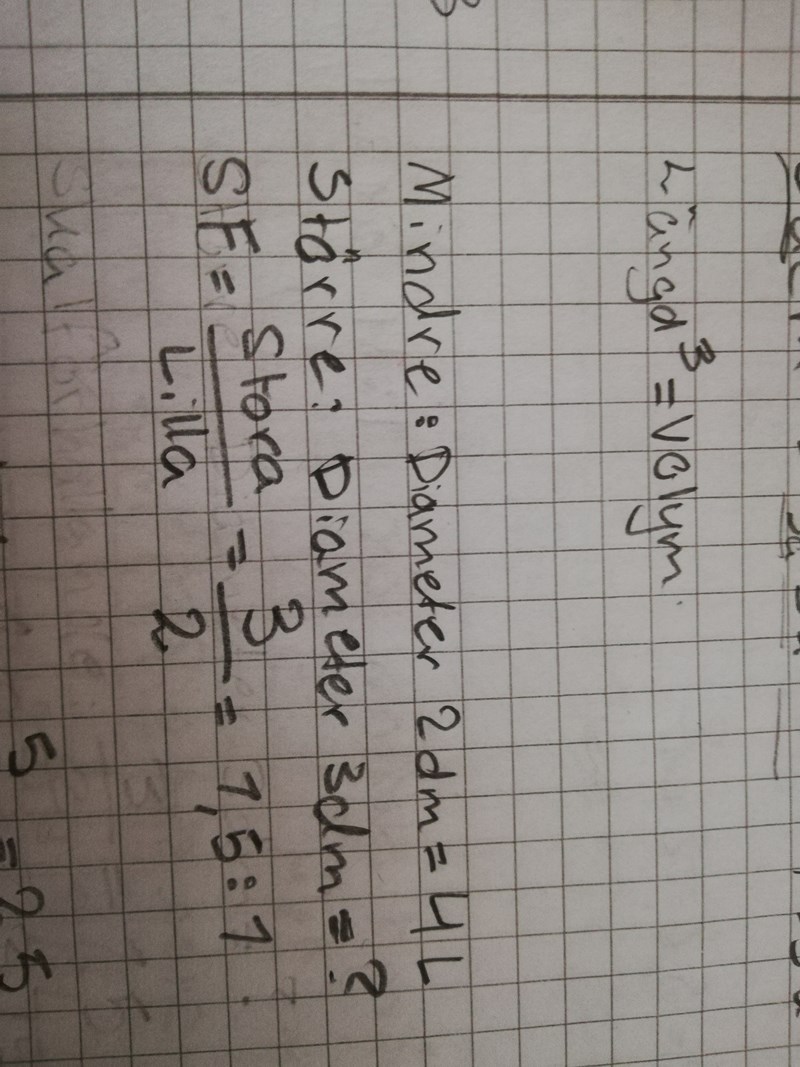 Längd³ = Volym
Mindre: Diameter 2dm = 4L
Större: Diameter 3dm = ?
Stora 3
SF = ——— = — = 1,5:1
Lilla 2
5
= 2 5